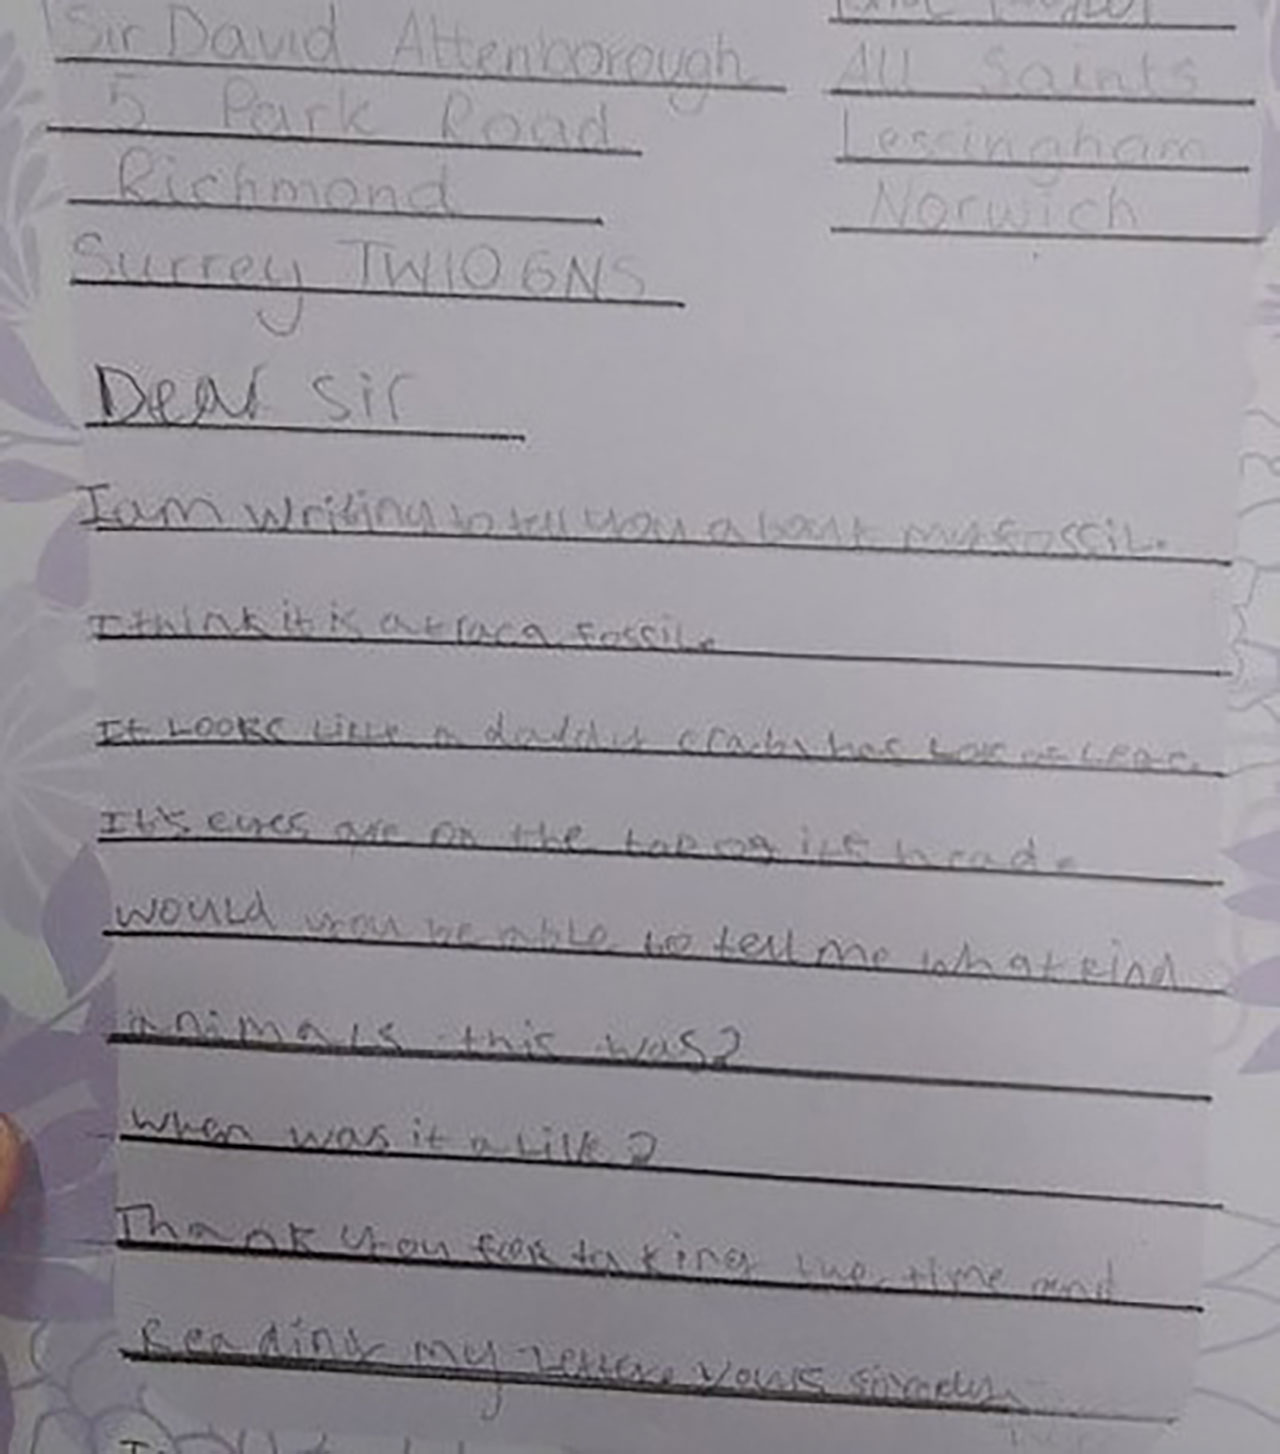 Sir David Attenborough
5 Park Road
Richmond
Surrey TW10 6NS
All Saints
Lessingham
Norwich
Dear Sir
I am writing to tell you about my fossil.
I think it is a fossil.
It Looks like a daddy crab has of
It's eyes are on the top og its head.
would you be able to tell me what kind
animals this was?
when was it alive?
Thank you for taking the time and
Reading my Letter yours